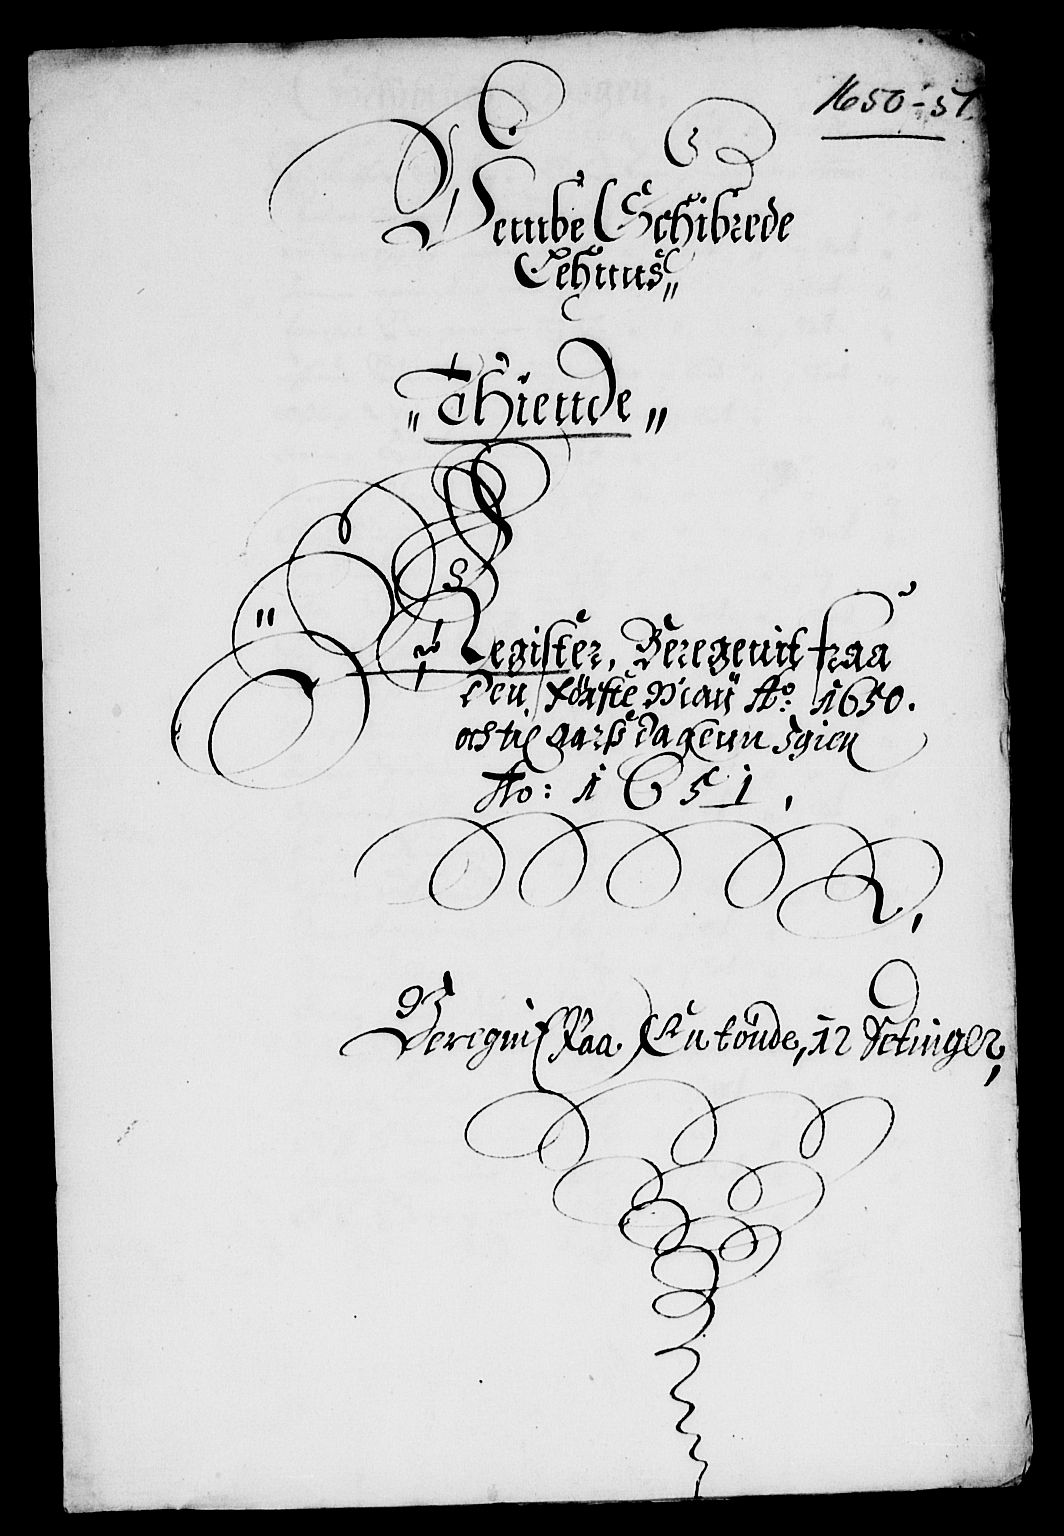 1650-51.
Bembe Schibrede
Lehnns
"Thiende"
Register, Beregenit fraa
Den første Maij Ao: 1650.
och til aarß dagenn Igien
Ao: 1651.
Beregnit Paa En tønde, 12 Setinger,